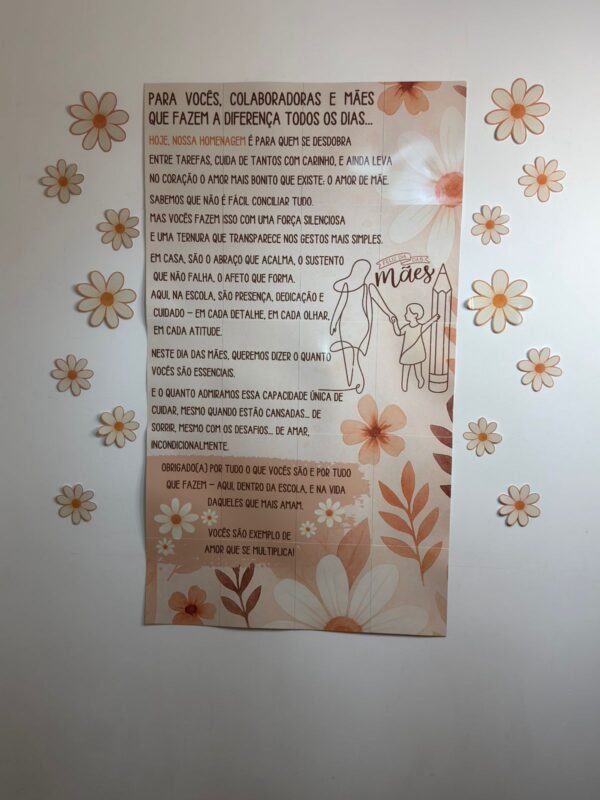 PARA VOCÊS, COLABORADORAS E MÃES
QUE FAZEM A DIFERENÇA TODOS OS DIAS...
HOJE, NOSSA HOMENAGEM É PARA QUEM SE DESDOBRA
ENTRE TAREFAS, CUIDA DE TANTOS COM CARINHO, E AINDA LEVA
NO CORAÇÃO O AMOR MAIS BONITO QUE EXISTE: O AMOR DE MÃE.
SABEMOS QUE NÃO É FÁCIL CONCILIAR TUDO.
MAS VOCÊS FAZEM ISSO COM UMA FORÇA SILENCIOSA
E UMA TERNURA QUE TRANSPARECE NOS GESTOS MAIS SIMPLES.
EM CASA, SÃO O ABRAÇO QUE ACALMA, O SUSTENTO
QUE NÃO FALHA, O AFETO QUE FORMA.
AQUI, NA ESCOLA, SÃO PRESENÇA, DEDICAÇÃO E
CUIDADO – EM CADA DETALHE, EM CADA OLHAR,
EM CADA ATITUDE.
FELIZ DIA DAS
MÃES
NESTE DIA DAS MÃES, QUEREMOS DIZER O QUANTO
VOCÊS SÃO ESSENCIAIS.
E O QUANTO ADMIRAMOS ESSA CAPACIDADE ÚNICA DE
CUIDAR, MESMO QUANDO ESTÃO CANSADAS... DE
SORRIR, MESMO COM OS DESAFIOS... DE AMAR,
INCONDICIONALMENTE.
OBRIGADO(A) POR TUDO O QUE VOCÊS SÃO E POR TUDO
QUE FAZEM – AQUI, DENTRO DA ESCOLA, E NA VIDA
DAQUELES QUE MAIS AMAM.
VOCÊS SÃO EXEMPLO DE
AMOR QUE SE MULTIPLICA!